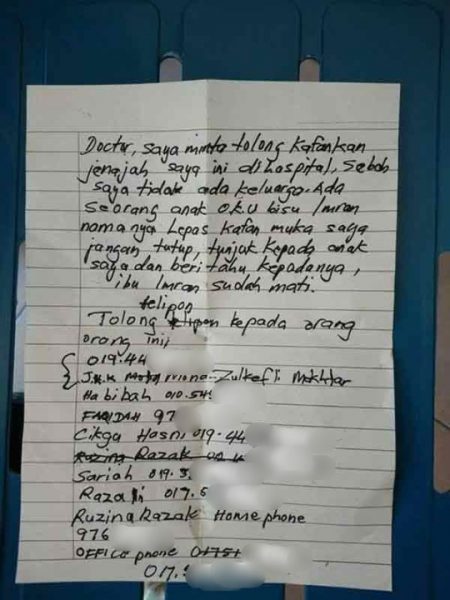 Doctur, saya minta tolong kafankan
jenajah saya ini di hospital, Sebab
saya tidak ada keluarga. Ada
seorang anak O.K.U bisu Imran
namanya Lepas kafan muka saya
jangan tutup, tunjuk kepada anak
saya dan beri tahu kepadanya,
ibu Imran sudah mati.
telipon
Tolong telipon kepada orang
orang inii
019.44
Zulkefli Mokhtar
Habibah 010.541
FARIDAH 97
Cikga Hasni 019.44
Ruzina Razak
Sariah 019.3
Razali 017.6
Ruzina Razak Home phone
976
OFFICe phone
017.9